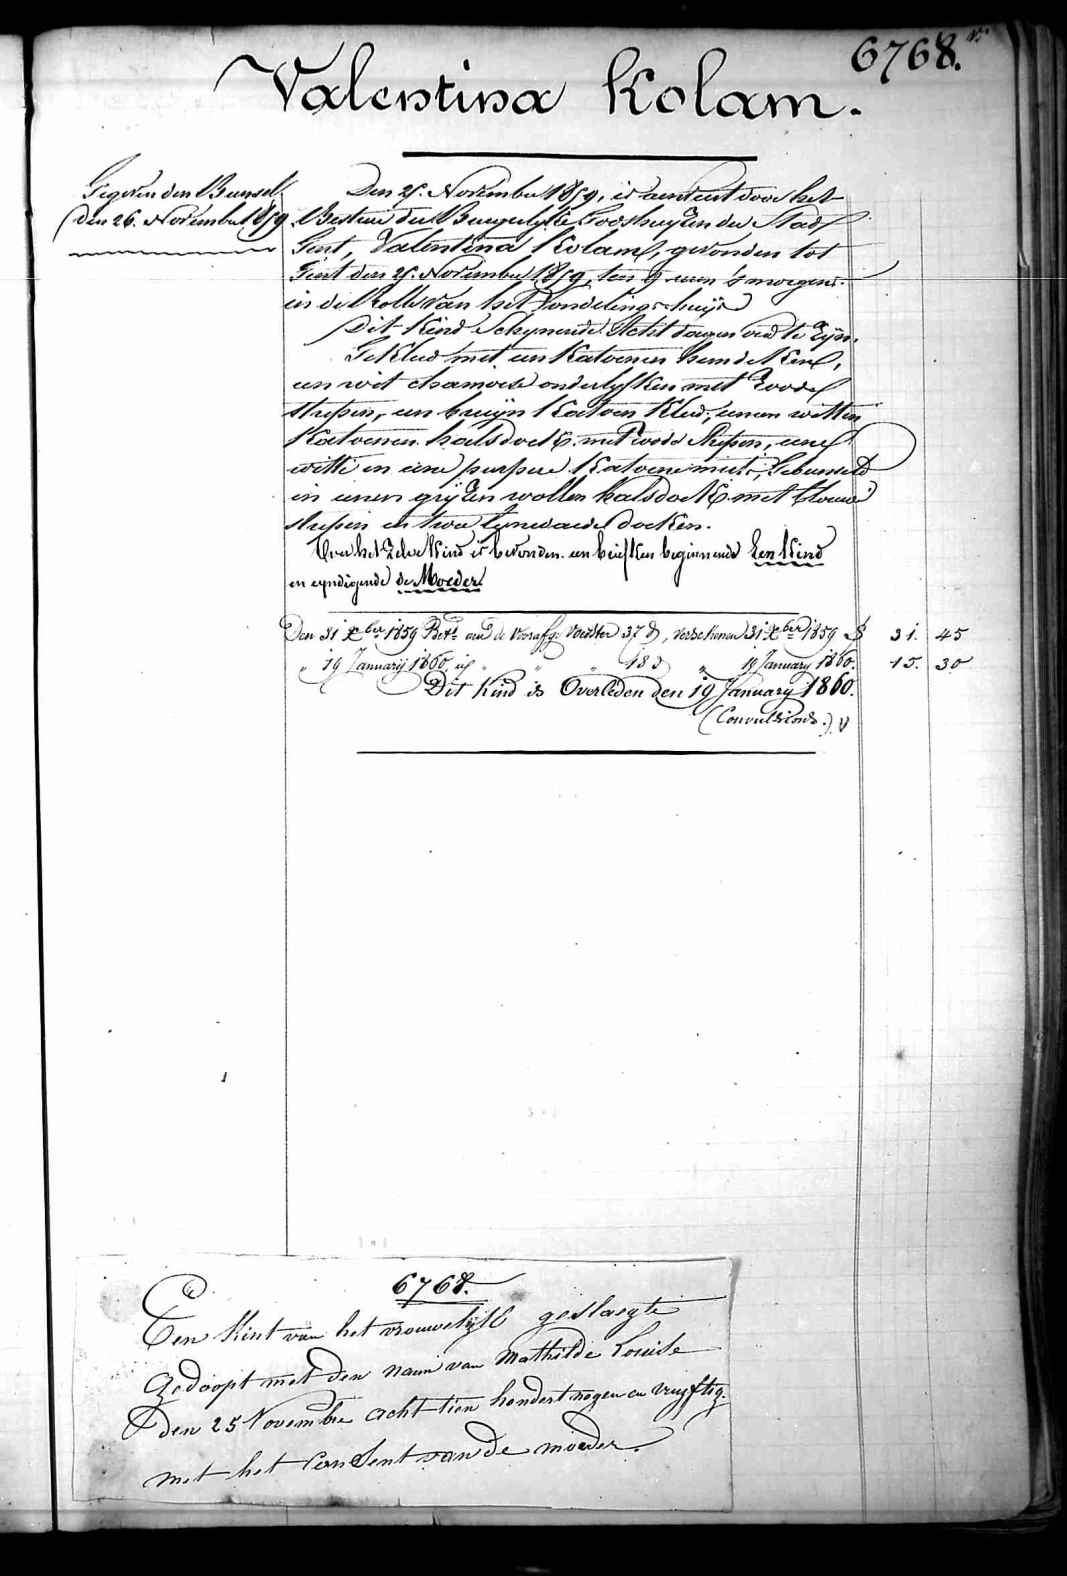 6768.
Valentina Kolam.
Gegeven den Bunsel
den 26. November 1859
Den 25. November 1859, is aenveert door het
Bestier der Burgerlyke Godshuyzen der Stad
Gent, Valentina Kolam, gevonden tot
Gent den 25. November 1859, ten 9 uren 's morgens
in de Rolle van het Vondelings-huijs
Dit Kind Schynende Acht dagen oud te Zyn.
Gekleed met een Katoenen hemdeken,
een wit chamoise onderlyfken met Roode
strepen, een bruyn Katoen Kleed, eenen witten
Katoenen halsdoek met roode Strepen, eene
witte en eene purpere Katoene muts, Gebunseld
in eenen gryzen wollen halsdoek met blauwe
strepen en twee lynwaede doeken.
Over het Zelve Kind is bevonden een briefken beginnende Een Kind
en eyndigende de Moeder
Den 31 Xber 1859 Bet. aen de Voorsz. Voedster 37 d, verschenen 31 Xber 1859 $ 31. 45
" 19 January 1860 id " " " 18 d " 19 January 1860. 15. 30
Dit Kind is Overleden den 19 January 1860.
(Convulsions.)
6768.
Een Kint van het vrouwelijk geslaegte
gedoopt met den naem van Mathilde Louise
den 25 Novembre acht tien hondert negen en vuyftig.
met het Consent van de moeder.